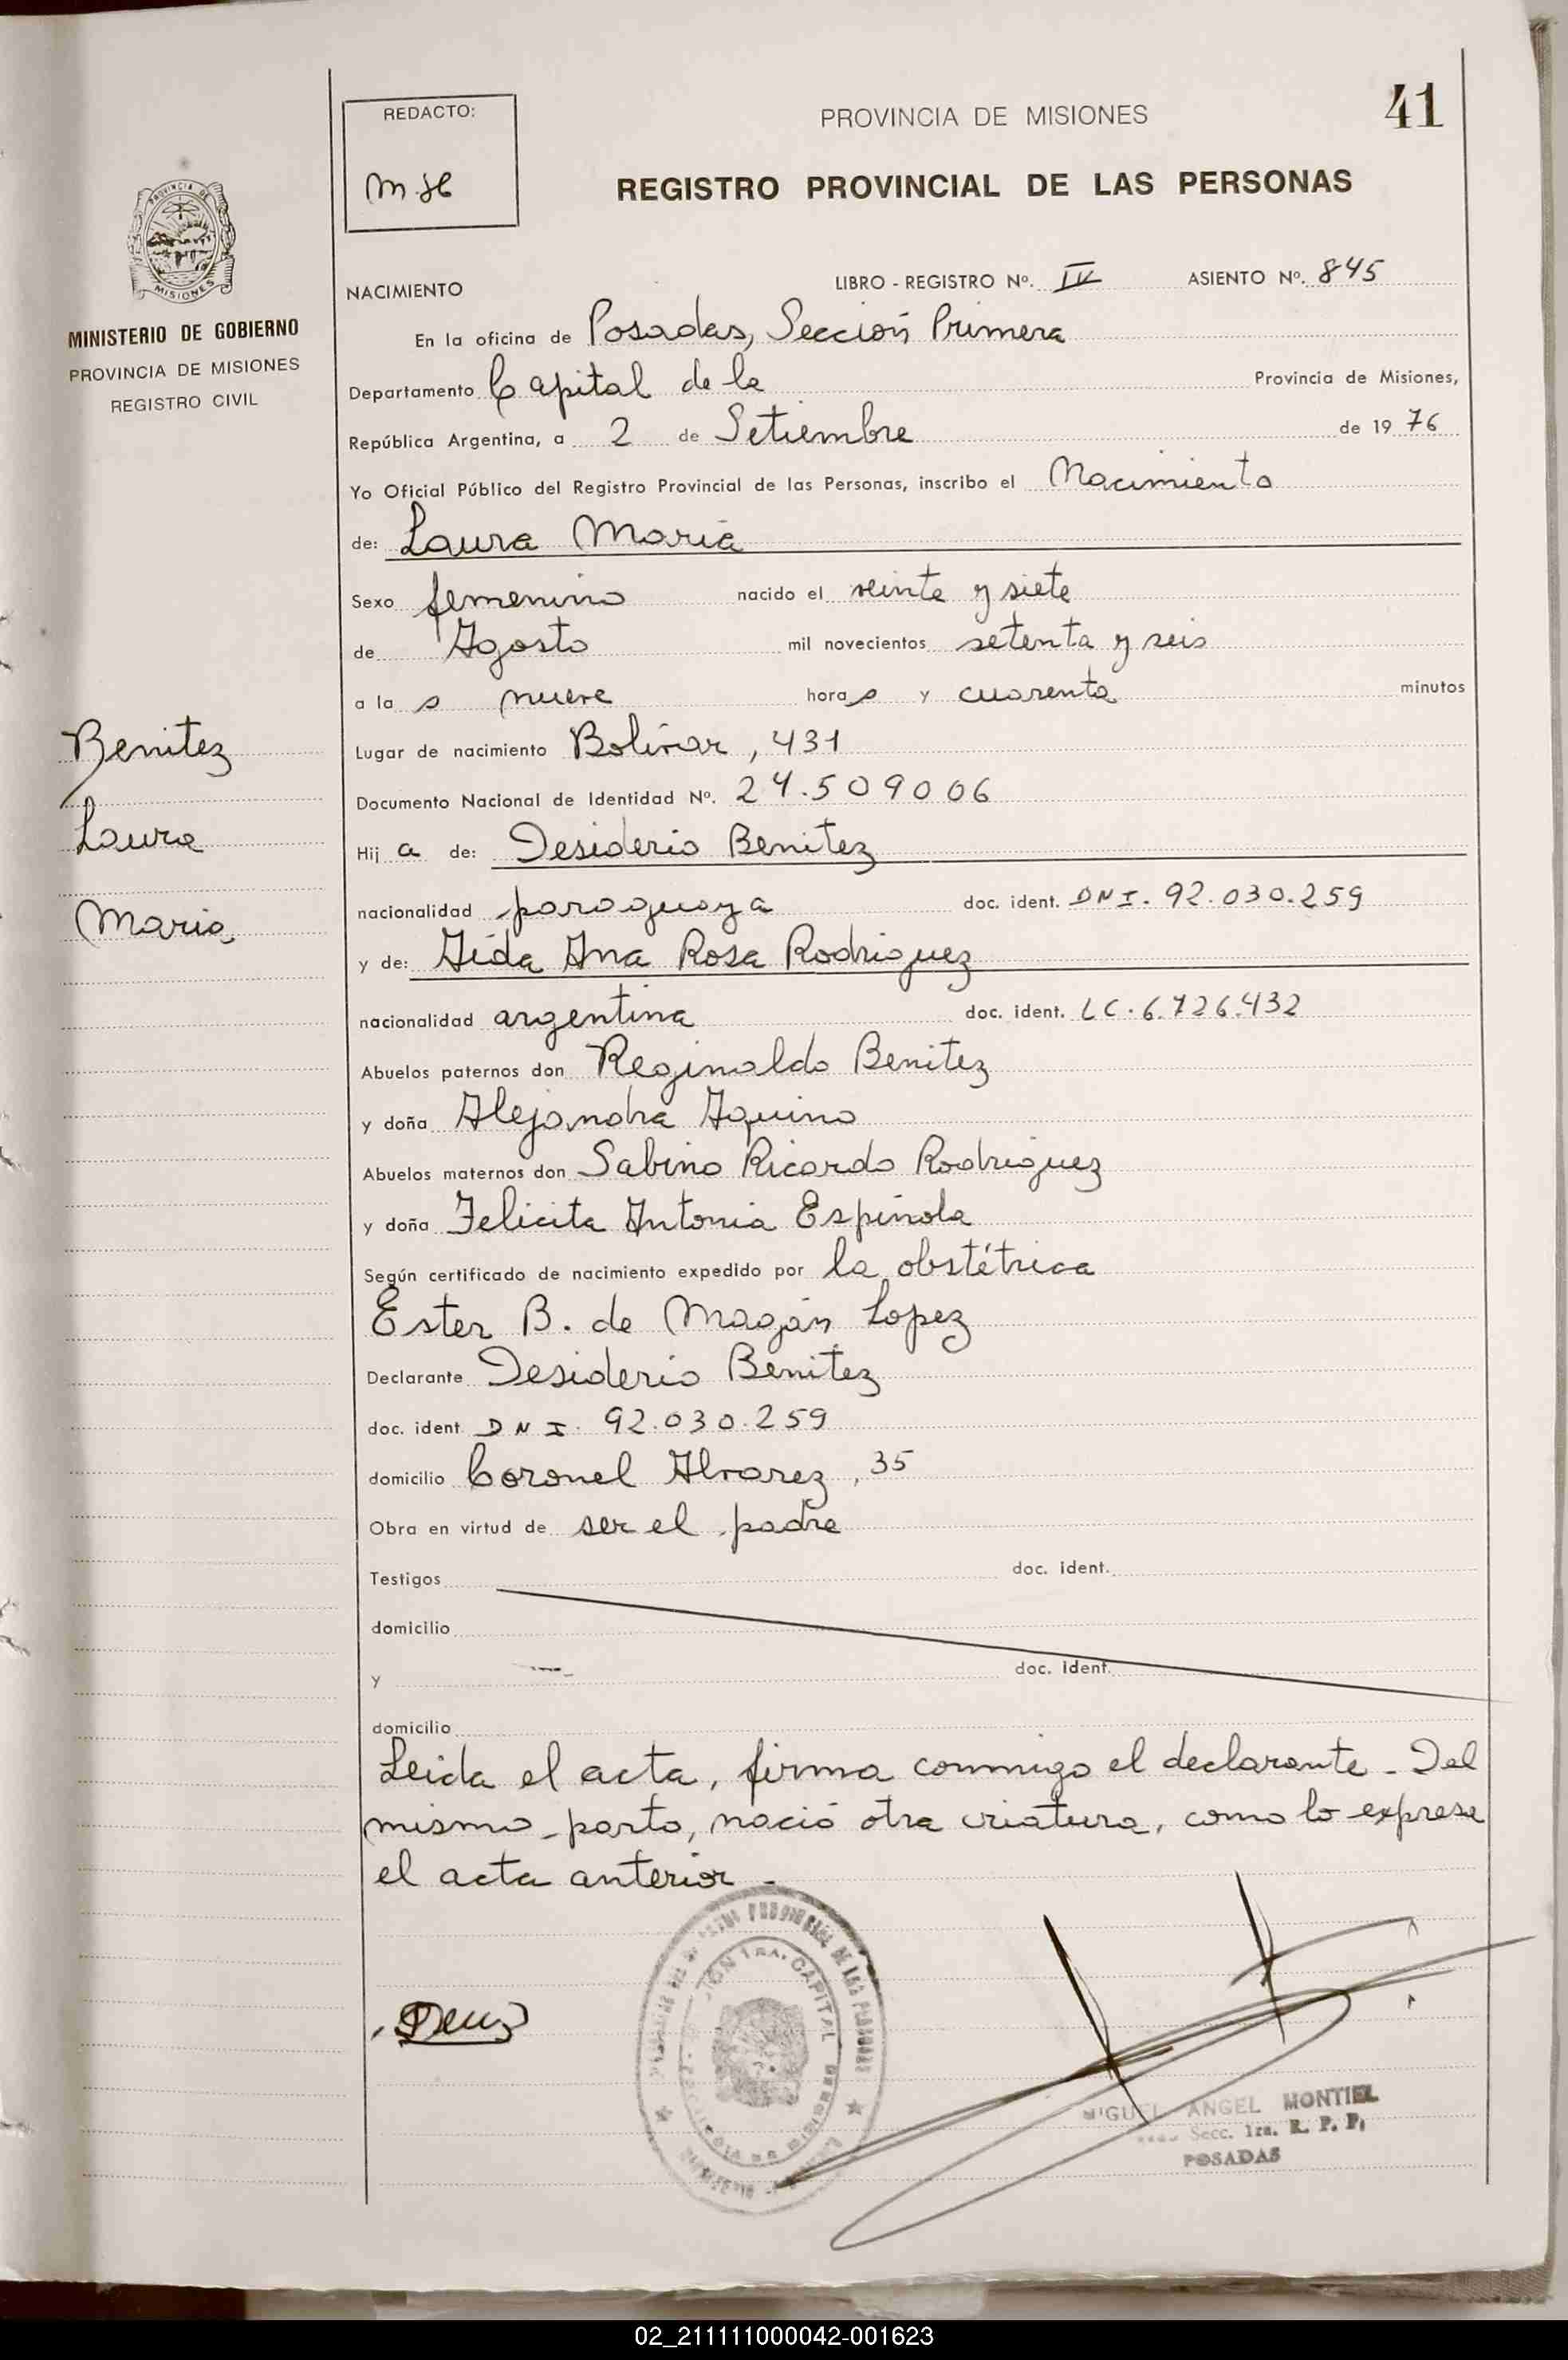 41
REDACTO:
PROVINCIA DE MISIONES
REGISTRO PROVINCIAL DE LAS PERSONAS
PROVINCIA DE
MISIONES
MINISTERIO DE GOBIERNO
PROVINCIA DE MISIONES
REGISTRO CIVIL
NACIMIENTO LIBRO - REGISTRO Nº. IV ASIENTO Nº. 845
En la oficina de Posadas, Sección Primera
Departamento Capital de la Provincia de Misiones,
República Argentina, a 2 de Setiembre de 1976
Yo Oficial Público del Registro Provincial de las Personas, inscribo el Nacimiento
de: Laura María
Sexo femenino nacido el veinte y siete
de Agosto mil novecientos setenta y seis
a la s nueve hora s y cuarenta minutos
Benitez
Laura
Maria
Lugar de nacimiento Bolívar, 431
Documento Nacional de Identidad Nº. 24.509006
Hij a de: Desiderio Benitez
nacionalidad paraguaya doc. ident. DNI. 92.030.259
y de: Aida Ana Rosa Rodriguez
nacionalidad argentina doc. ident. LC. 6.726.432
Abuelos paternos don Reginaldo Benitez
y doña Alejandra Aquino
Abuelos maternos don Sabino Ricardo Rodriguez
y doña Felicita Antonia Espinola
Según certificado de nacimiento expedido por la obstétrica
Ester B. de Magán Lopez
Declarante Desiderio Benitez
doc. ident. DNI. 92.030.259
domicilio Coronel Alvarez, 35
Obra en virtud de ser el padre
Testigos doc. ident.
domicilio
y doc. ident.
domicilio
Leida el acta, firma conmigo el declarante. Del
mismo parto, nació otra criatura, como lo expresa
el acta anterior.
MIGUEL ANGEL MONTIEL
Secc. 1ra. R. P. P.
POSADAS
02_211111000042-001623